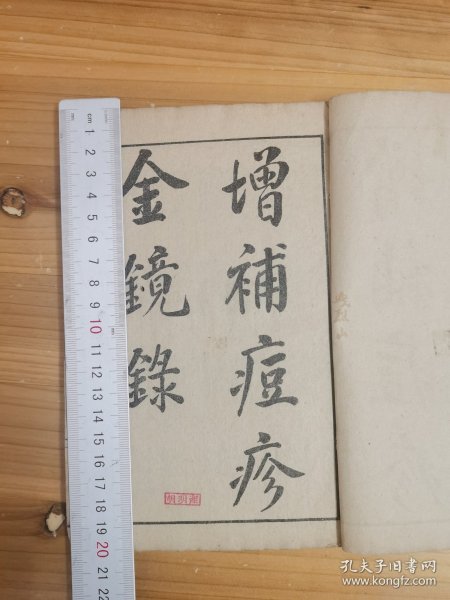 增補痘疹
金鏡錄
cm
1
2
3
4
5
6
7
8
9
10
11
12
13
14
15
16
17
18
19
20
21
22
孔夫子旧书网
www.kongfz.com